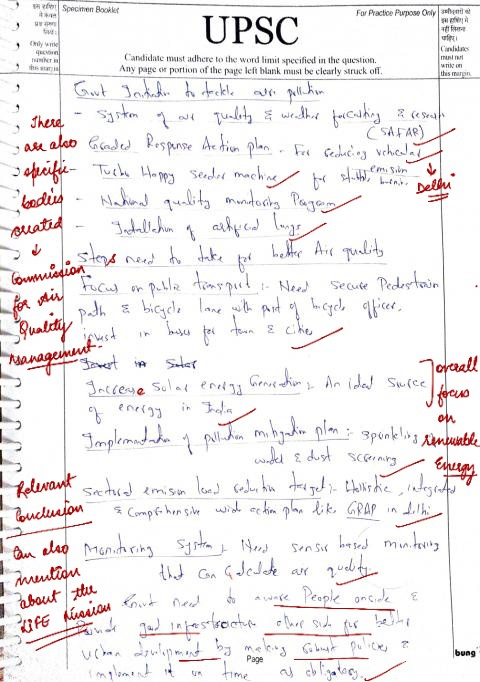 इस हाशिए में केवल प्रश्न संख्या लिखें।
Only write question number in this margin
Specimen Booklet
UPSC
For Practice Purpose Only
उम्मीदवारों को इस हाशिए में नहीं लिखना चाहिए।
Candidates must not write on this margin.
Candidate must adhere to the word limit specified in the question.
Any page or portion of the page left blank must be clearly struck off.
Govt Initiative to tackle air pollution
- System of air quality & weather forcasting & research
(SAFAR)
- Graded Response Action plan - For reducing vehicular
emission
Delhi
- Turbo Happy Seeder machine for stubble burning
- National quality monitoring Program
- Installation of artificial lungs
There are also specific bodies created
Commission for Air Quality management.
Steps need to take for better Air quality
Focus on public transport :- Need Secure Pedestrain
path & bicycle lane with post of bicycle officer,
invest in buses for town & cities
Invest in Solar
Increase Solar energy Generation :- An ideal source
of energy in India
overall focus on renewable Energy
Implementation of pollution mitigation plan :- Sprinkling
water & dust screening
Sectoral emission load reduction target :- Holistic, integrated
& comprehensive wide action plan like GRAP in Delhi
Monitoring System :- Need sensor based monitoring
that can calculate air quality.
Relevant Conclusion
Can also mention about the LiFE Mission
Govt need to aware People onside &
Provide good infrastructure other side for better
Urban development by making Robust policies &
implement it on time as obligatory.
Page
bung